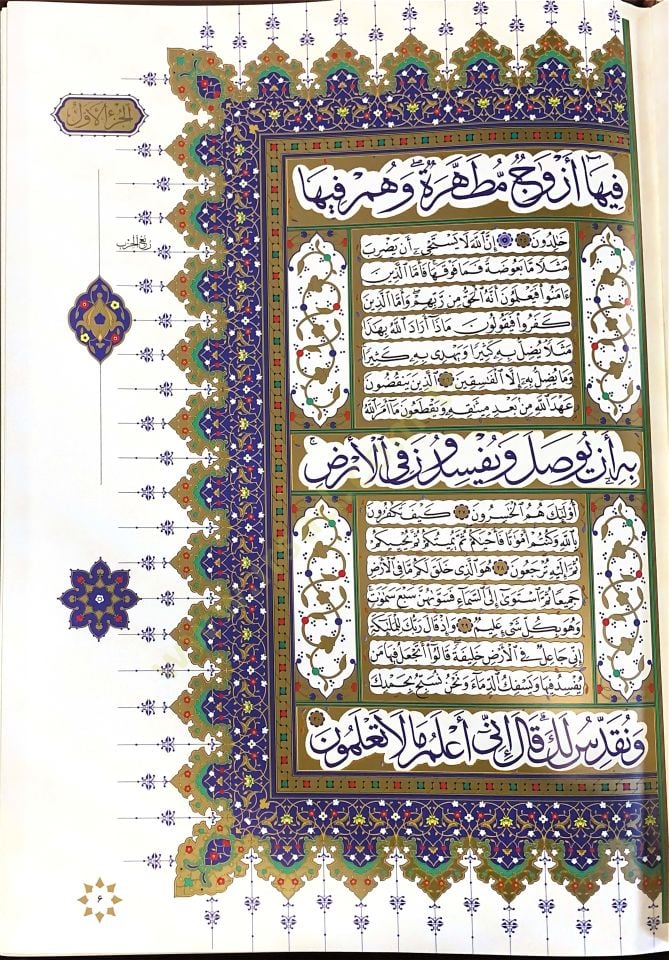 الجزء الاول
ربع الحزب
فِيهَا أَزْوَٰجٌ مُّطَهَّرَةٌ وَهُمْ فِيهَا
خَٰلِدُونَ ۝ إِنَّ ٱللَّهَ لَا يَسْتَحْىِۦٓ أَن يَضْرِبَ
مَثَلًا مَّا بَعُوضَةً فَمَا فَوْقَهَا فَأَمَّا ٱلَّذِينَ
ءَامَنُوا۟ فَيَعْلَمُونَ أَنَّهُ ٱلْحَقُّ مِن رَّبِّهِمْ وَأَمَّا ٱلَّذِينَ
كَفَرُوا۟ فَيَقُولُونَ مَاذَآ أَرَادَ ٱللَّهُ بِهَٰذَا
مَثَلًا يُضِلُّ بِهِۦ كَثِيرًا وَيَهْدِى بِهِۦ كَثِيرًا
وَمَا يُضِلُّ بِهِۦٓ إِلَّا ٱلْفَٰسِقِينَ ۝ ٱلَّذِينَ يَنقُضُونَ
عَهْدَ ٱللَّهِ مِنۢ بَعْدِ مِيثَٰقِهِۦ وَيَقْطَعُونَ مَآ أَمَرَ ٱللَّهُ
بِهِۦٓ أَن يُوصَلَ وَيُفْسِدُونَ فِى ٱلْأَرْضِ ۚ
أُو۟لَٰٓئِكَ هُمُ ٱلْخَٰسِرُونَ ۝ كَيْفَ تَكْفُرُونَ
بِٱللَّهِ وَكُنتُمْ أَمْوَٰتًا فَأَحْيَٰكُمْ ثُمَّ يُمِيتُكُمْ ثُمَّ يُحْيِيكُمْ
ثُمَّ إِلَيْهِ تُرْجَعُونَ ۝ هُوَ ٱلَّذِى خَلَقَ لَكُم مَّا فِى ٱلْأَرْضِ
جَمِيعًا ثُمَّ ٱسْتَوَىٰٓ إِلَى ٱلسَّمَآءِ فَسَوَّىٰهُنَّ سَبْعَ سَمَٰوَٰتٍ
وَهُوَ بِكُلِّ شَىْءٍ عَلِيمٌ ۝ وَإِذْ قَالَ رَبُّكَ لِلْمَلَٰٓئِكَةِ
إِنِّى جَاعِلٌ فِى ٱلْأَرْضِ خَلِيفَةً قَالُوٓا۟ أَتَجْعَلُ فِيهَا مَن
يُفْسِدُ فِيهَا وَيَسْفِكُ ٱلدِّمَآءَ وَنَحْنُ نُسَبِّحُ بِحَمْدِكَ
وَنُقَدِّسُ لَكَ قَالَ إِنِّىٓ أَعْلَمُ مَا لَا تَعْلَمُونَ ۝
۶